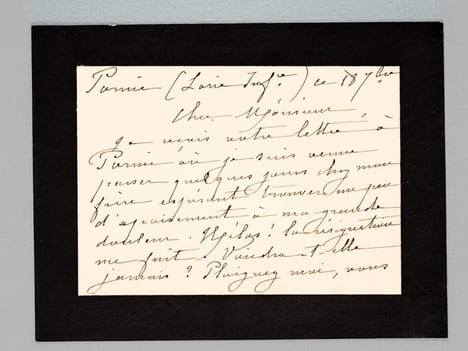 Pornic (Loire Infre) ce 18 7bre
Cher Monsieur,
Je reçois votre lettre, à
Pornic où je suis venue
passer quelques jours chez mon
frère espérant trouver un peu
d'apaisement à ma grande
douleur. Hélas! la résignation
me fuit. Viendra-t-elle
jamais? Plaignez moi, vous